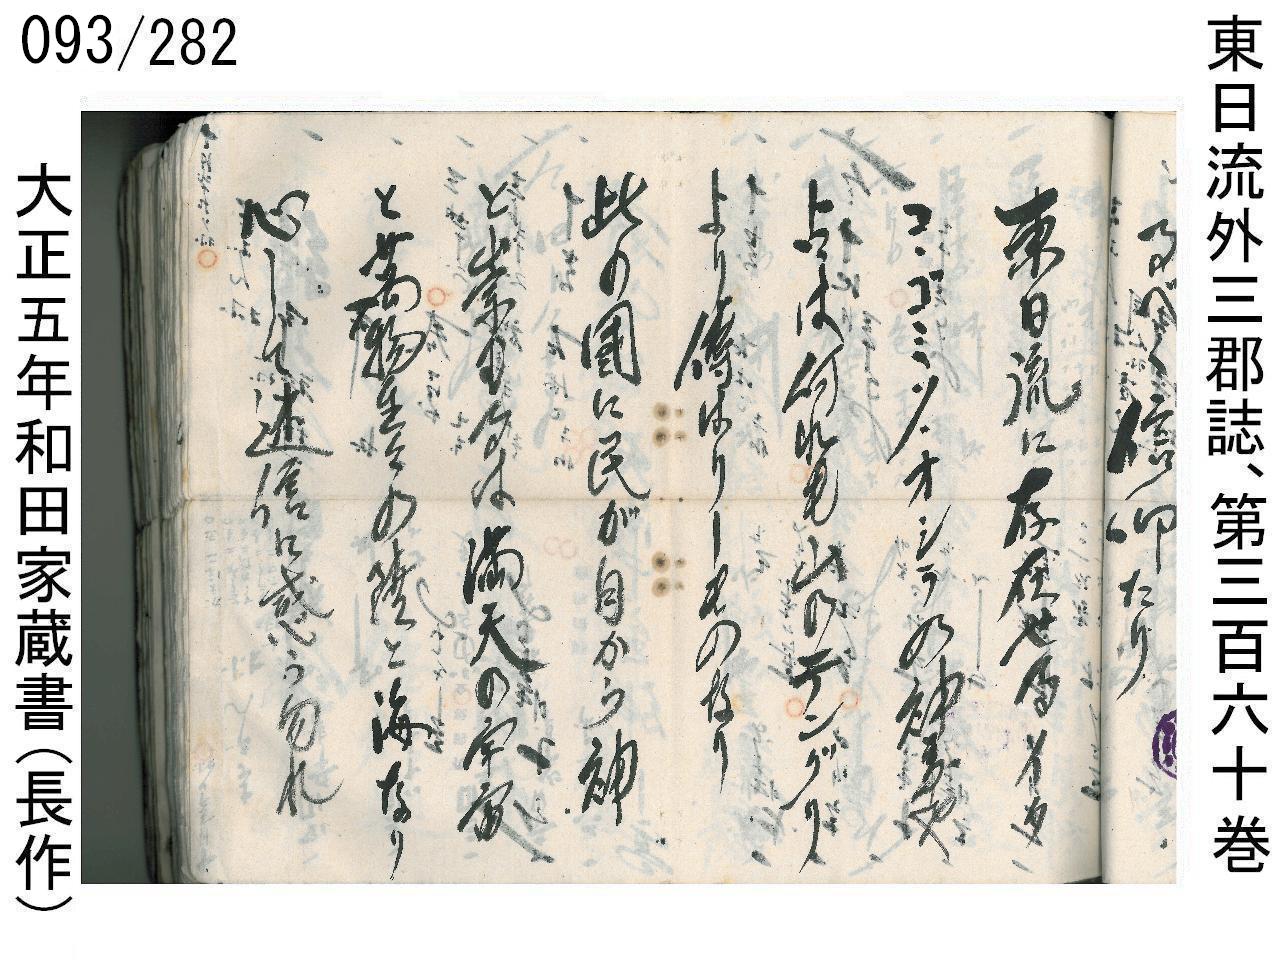 093/282
東日流外三郡誌、第三百六十巻
信仰たり
東日流に存在せるイタ
コ、ゴミソ、オシラの神
占は何れも山のテングリ
より傳はりしものなり
此の國に民が自から神
と崇むは満天の宇宙
と萬物生その陸と海なり
心して迷信に惑う勿れ
大正五年和田家蔵書（長作）